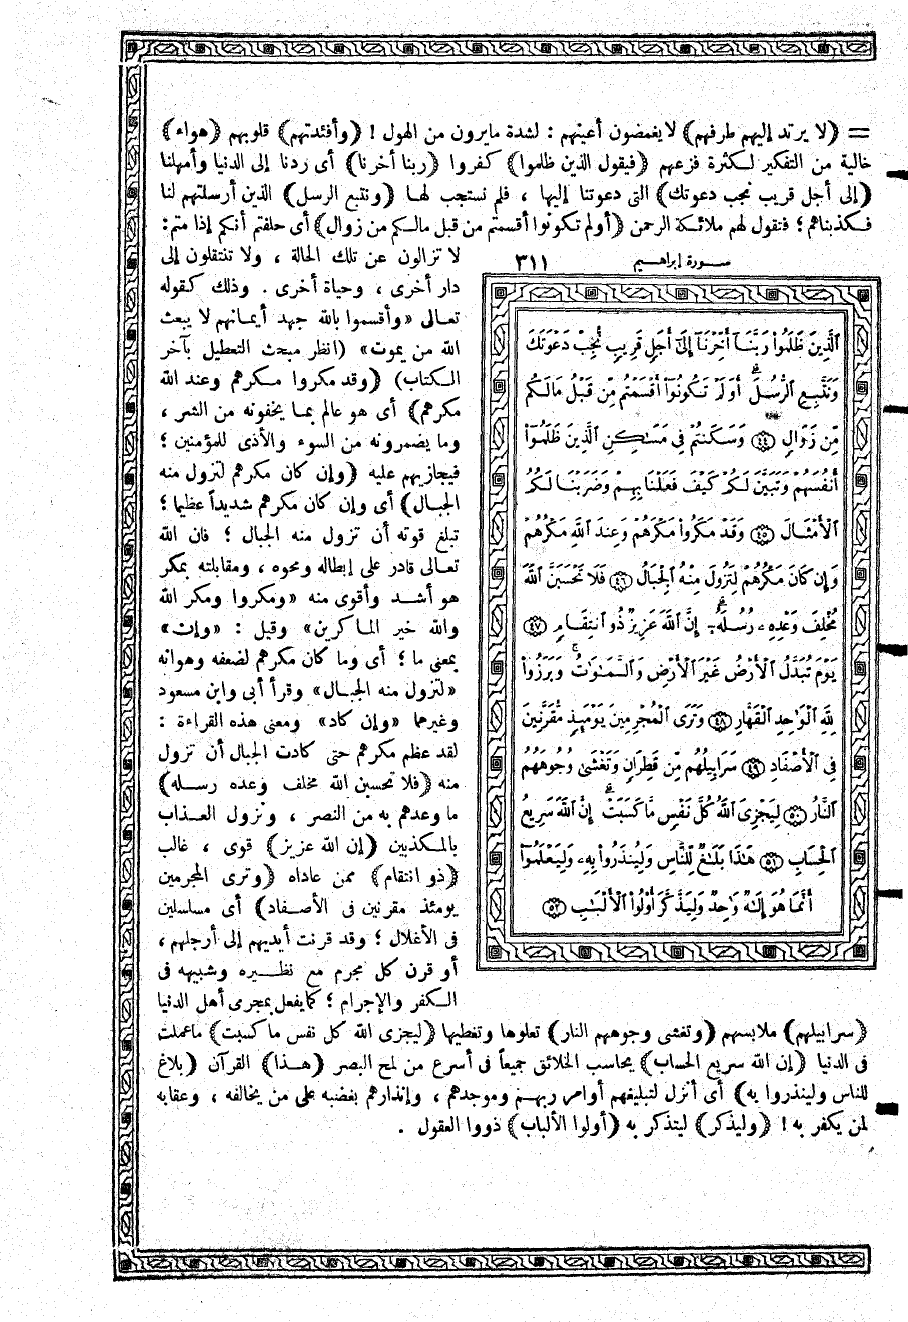 = (لا يرتد إليهم طرفهم) لا يغمضون أعينهم : لشدة مايرون من الهول ! (وأفئدتهم) قلوبهم (هواء)
خالية من التفكير لكثرة فزعهم (فيقول الذين ظلموا) كفروا (ربنا أخرنا) أى ردنا إلى الدنيا وأمهلنا
(إلى أجل قريب نجب دعوتك) التى دعوتنا إليها ، فلم نستجب لها (ونتبع الرسل) الذين أرسلتهم لنا
فكذبناهم ؛ فتقول لهم ملائكة الرحمن (أولم تكونوا أقسمتم من قبل مالكم من زوال) أى حلفتم أنكم إذا متم :
لا تزالون عن تلك الحالة ، ولا تنتقلون إلى
دار أخرى ، وحياة أخرى . وذلك كقوله
تعالى «وأقسموا بالله جهد أيمانهم لا يبعث
الله من يموت» (انظر مبحث التعطيل بآخر
الكتاب) (وقد مكروا مكرهم وعند الله
مكرهم) أى هو عالم بما يخفونه من الشر ،
وما يضمرونه من السوء والأذى للمؤمنين ؛
فيجازيهم عليه (وإن كان مكرهم لتزول منه
الجبال) أى وإن كان مكرهم شديداً عظيما ؛
تبلغ قوته أن تزول منه الجبال ؛ فان الله
تعالى قادر على إبطاله ومحوه ، ومقابلته بمكر
هو أشد وأقوى منه «ومكروا ومكر الله
والله خير الماكرين» وقيل : «وإن»
بمعنى ما ؛ أى وما كان مكرهم لضعفه وهوانه
«لتزول منه الجبال» وقرأ أبى وابن مسعود
وغيرهما «وإن كاد» ومعنى هذه القراءة :
لقد عظم مكرهم حتى كادت الجبال أن تزول
منه (فلا تحسبن الله مخلف وعده رسله)
ما وعدهم به من النصر ، ونزول العذاب
بالمكذبين (إن الله عزيز) قوى ، غالب
(ذو انتقام) ممن عاداه (وترى المجرمين
يومئذ مقرنين فى الأصفاد) أى مسلسلين
فى الأغلال ؛ وقد قرنت أيديهم إلى أرجلهم ،
أو قرن كل مجرم مع نظيره وشبيهه فى
الكفر والإجرام ؛ كما يفعل بمجرى أهل الدنيا
سورة إبراهيم ٣١١
ٱلَّذِينَ ظَلَمُوا۟ رَبَّنَآ أَخِّرْنَآ إِلَىٰٓ أَجَلٍ قَرِيبٍ نُّجِبْ دَعْوَتَكَ
وَنَتَّبِعِ ٱلرُّسُلَ ۗ أَوَلَمْ تَكُونُوٓا۟ أَقْسَمْتُم مِّن قَبْلُ مَالَكُم
مِّن زَوَالٍ ﴿٤٤﴾ وَسَكَنتُمْ فِى مَسَٰكِنِ ٱلَّذِينَ ظَلَمُوٓا۟
أَنفُسَهُمْ وَتَبَيَّنَ لَكُمْ كَيْفَ فَعَلْنَا بِهِمْ وَضَرَبْنَا لَكُمُ
ٱلْأَمْثَالَ ﴿٤٥﴾ وَقَدْ مَكَرُوا۟ مَكْرَهُمْ وَعِندَ ٱللَّهِ مَكْرُهُمْ
وَإِن كَانَ مَكْرُهُمْ لِتَزُولَ مِنْهُ ٱلْجِبَالُ ﴿٤٦﴾ فَلَا تَحْسَبَنَّ ٱللَّهَ
مُخْلِفَ وَعْدِهِۦ رُسُلَهُۥٓ ۗ إِنَّ ٱللَّهَ عَزِيزٌ ذُو ٱنتِقَامٍ ﴿٤٧﴾
يَوْمَ تُبَدَّلُ ٱلْأَرْضُ غَيْرَ ٱلْأَرْضِ وَٱلسَّمَٰوَٰتُ ۖ وَبَرَزُوا۟
لِلَّهِ ٱلْوَٰحِدِ ٱلْقَهَّارِ ﴿٤٨﴾ وَتَرَى ٱلْمُجْرِمِينَ يَوْمَئِذٍ مُّقَرَّنِينَ
فِى ٱلْأَصْفَادِ ﴿٤٩﴾ سَرَابِيلُهُم مِّن قَطِرَانٍ وَتَغْشَىٰ وُجُوهَهُمُ
ٱلنَّارُ ﴿٥٠﴾ لِيَجْزِىَ ٱللَّهُ كُلَّ نَفْسٍ مَّا كَسَبَتْ ۚ إِنَّ ٱللَّهَ سَرِيعُ
ٱلْحِسَابِ ﴿٥١﴾ هَٰذَا بَلَٰغٌ لِّلنَّاسِ وَلِيُنذَرُوا۟ بِهِۦ وَلِيَعْلَمُوٓا۟
أَنَّمَا هُوَ إِلَٰهٌ وَٰحِدٌ وَلِيَذَّكَّرَ أُو۟لُوا۟ ٱلْأَلْبَٰبِ ﴿٥٢﴾
(سرابيلهم) ملابسهم (وتغشى وجوههم النار) تعلوها وتغطيها (ليجزى الله كل نفس ما كسبت) ماعملت
فى الدنيا (إن الله سريع الحساب) يحاسب الخلائق جميعاً فى أسرع من لمح البصر (هذا) القرآن (بلاغ
للناس ولينذروا به) أى أنزل لتبليغهم أوامر ربهم وموجدهم ، وإنذارهم بغضبه على من يخالفه ، وعقابه
لمن يكفر به ! (وليذكر) ليتذكر به (أولوا الألباب) ذووا العقول .